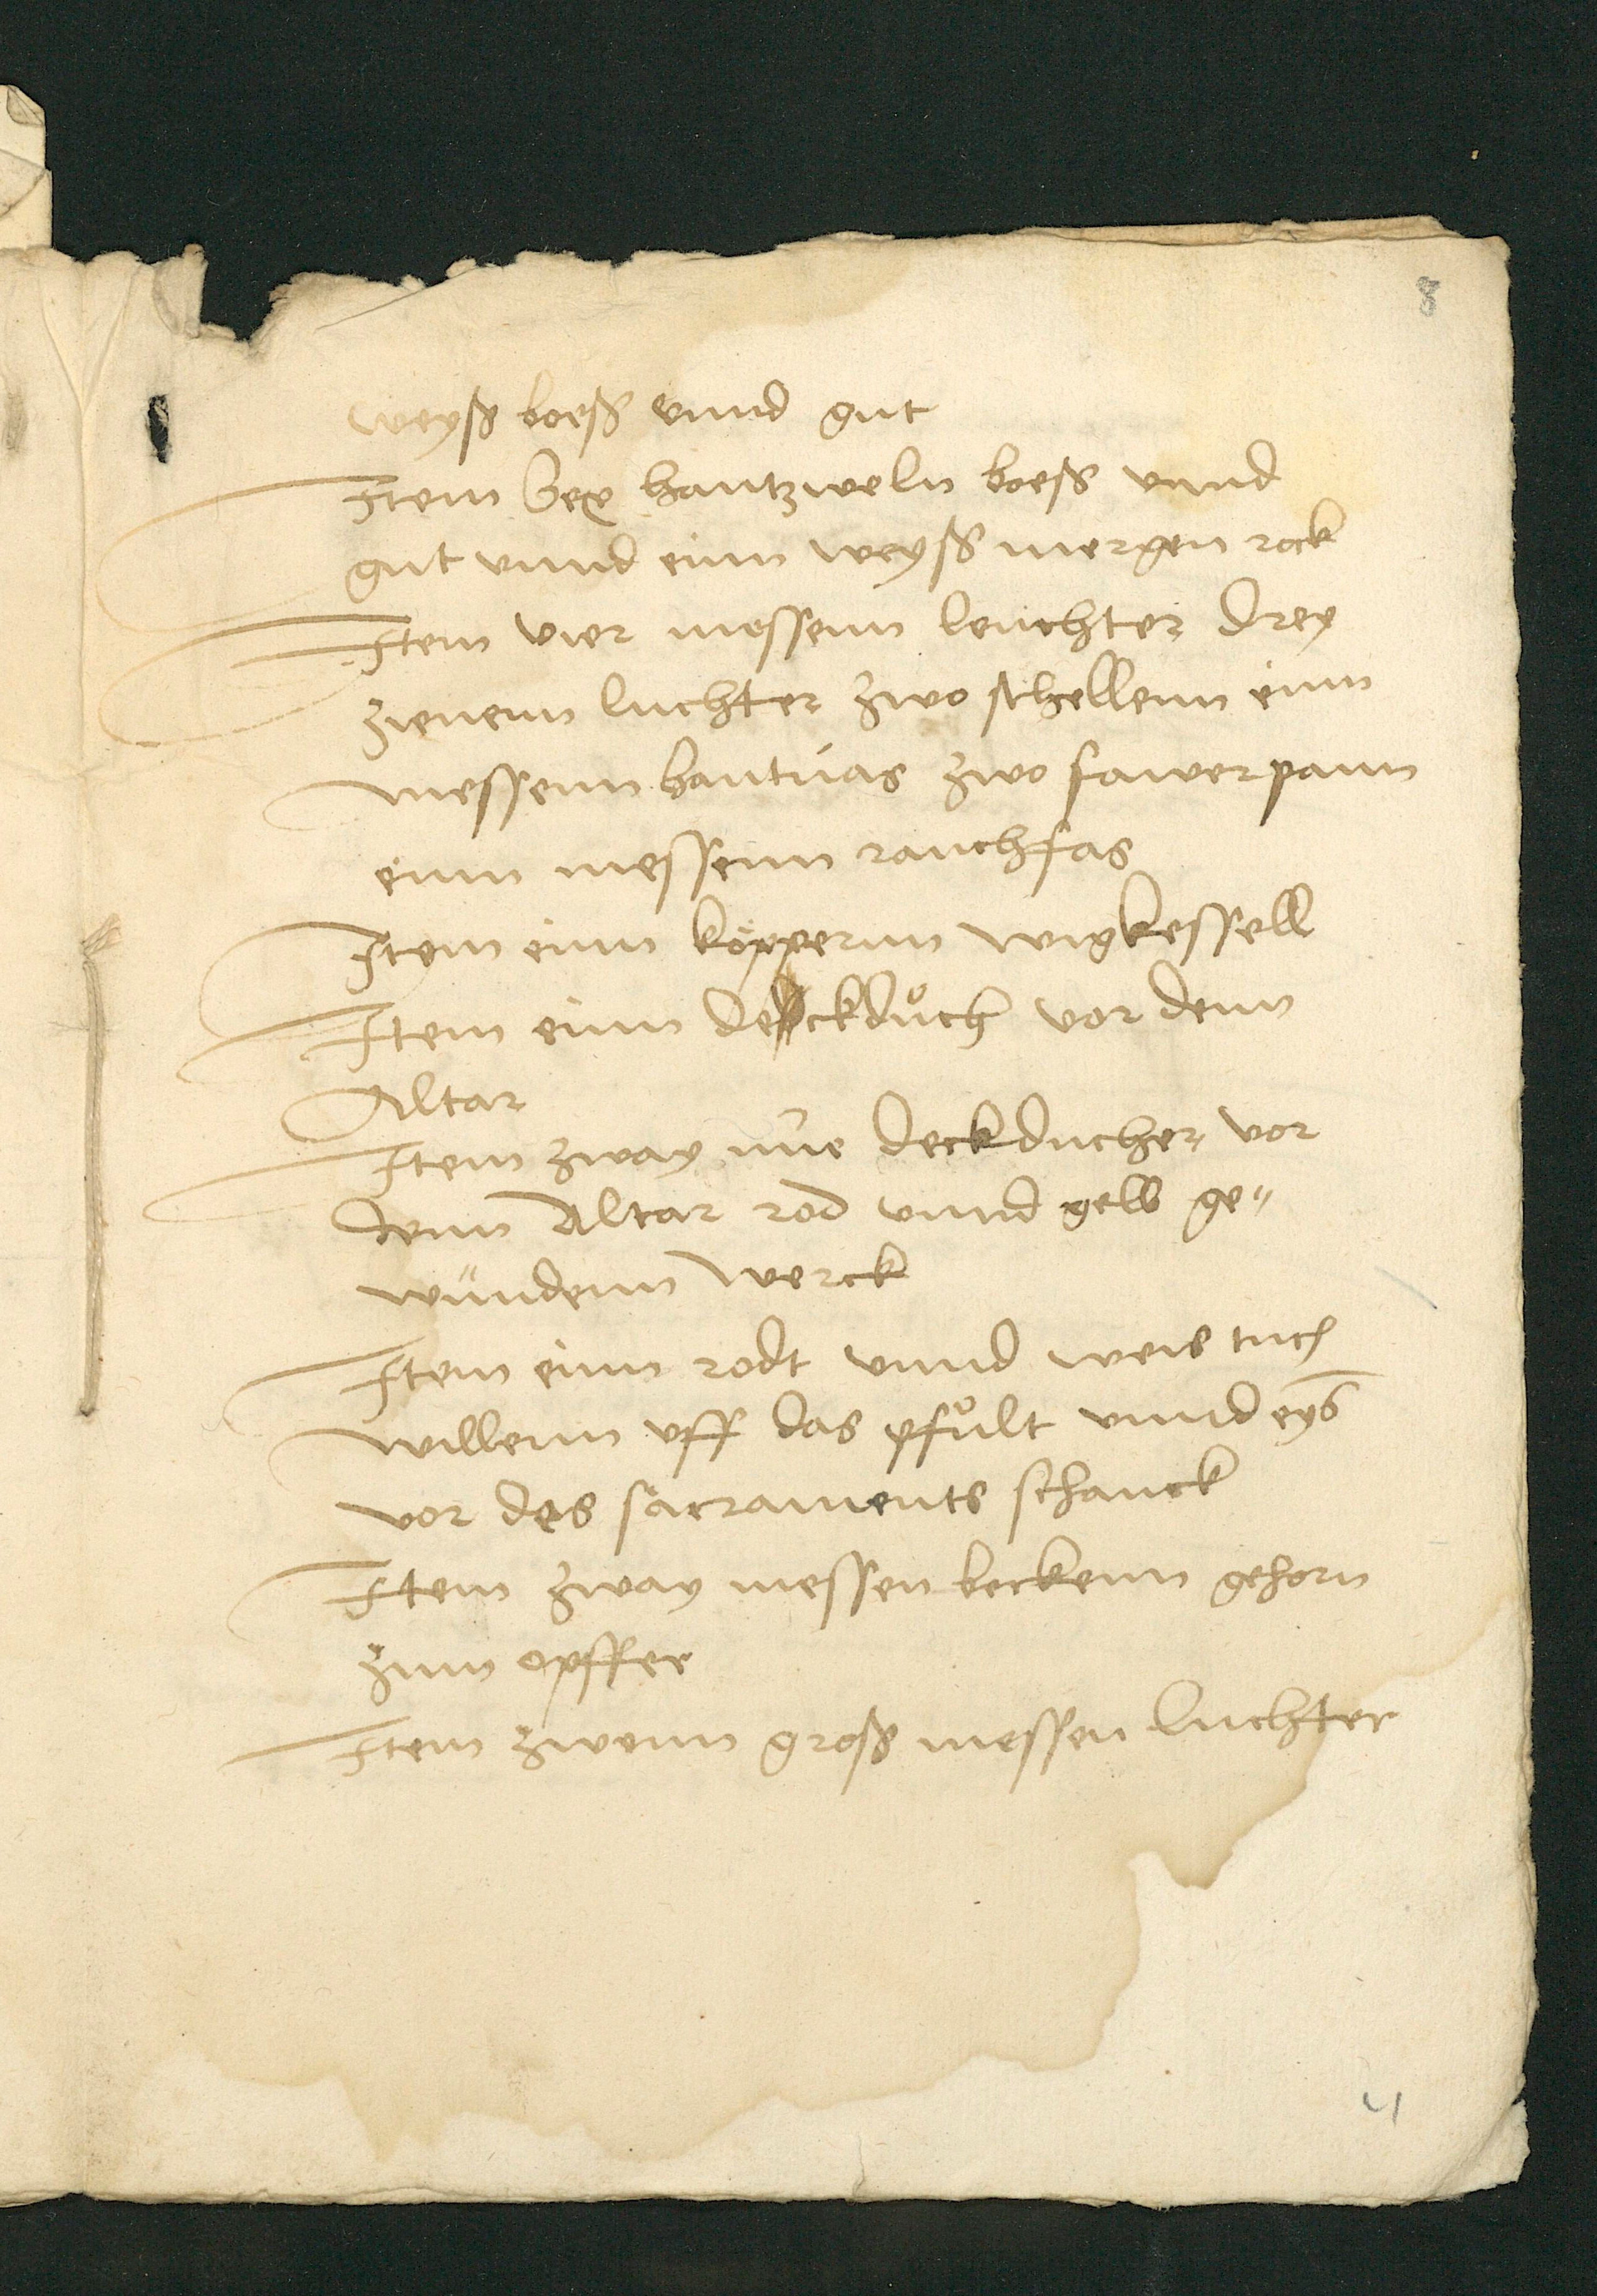 8
weyß boeß vnnd gut
Item sex hantzweln boeß vnnd
gut vnnd einn weyß mergen rock
Item vier messenn leuchter drey
zienenn luchter zwo schellenn einn
messenn hantuas zwo fawerpann
einn messenn rauchfas
Item einn köppernn wigkessell
Item einn deckdůch vor denn
Altar
Item zway nue deckducher vor
denn Altar rod vnnd gelb ge-
wundenn werck
Item einn rodt vnnd weis tuch
willenn vff das pfůlt vnnd eyß
vor des sacraments schanck
Item zway messen beckenn gehorn
zum opffer
Item zwenn groß messen luchter